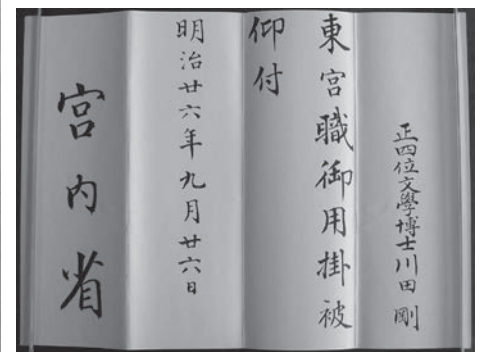 正四位文學博士川田剛
東宮職御用掛被
仰付
明治廿六年九月廿六日
宮内省